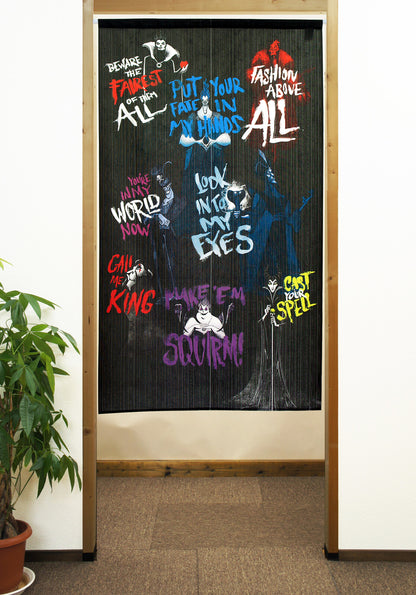 BEWARE
THE
FAIREST
OF THEM
ALL
PUT YOUR
FATE IN
MY HANDS
FASHION
ABOVE
ALL
YOU'RE
IN MY
WORLD
NOW
LOOK
INTO
MY
EYES
CALL
ME
KING
MAKE 'EM
SQUIRM!
CAST
YOUR
SPELL